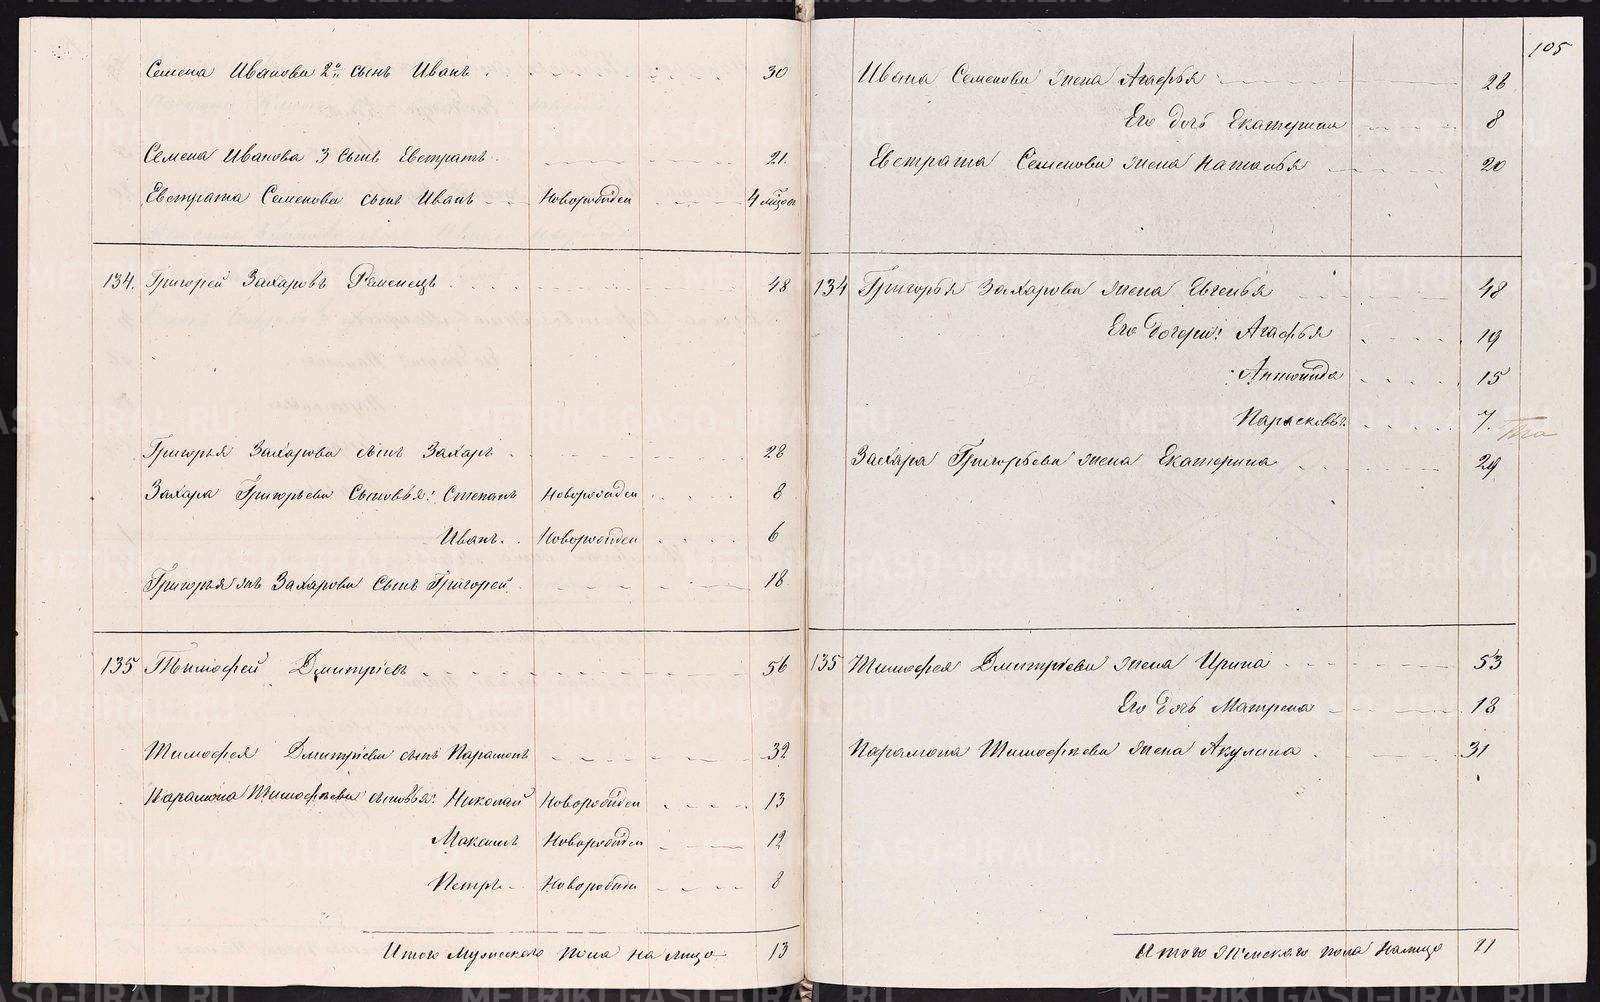 Семена Иванова 2й сынъ Иванъ 30
Семена Иванова 3 сынъ Евстратъ 21.
Евстрата Семенова сынъ Иванъ Новорожден 4 мѣсяц
134. Григорей Захаровъ Ременецъ 48
Григорья Захарова сынъ Захаръ 28
Захара Григорьева сыновья: Степанъ Новорожден 8
Иванъ Новорожден 6
Григорья жъ Захарова сынъ Григорей 18
135 Тимофей Дмитріевъ 56
Тимофея Дмитріева сынъ Парамонъ 32
Парамона Тимофѣева сыновья: Николай Новорожден 13
Максимъ Новорожден 12
Петръ Новорожден 8
Итого Мужескаго пола на лицо 13
105
Ивана Семенова жена Агафья 28
Его дочь Екатерина 8
Евстрата Семенова жена Наталья 20
134 Григорья Захарова жена Евгенья 48
Его дочери: Агафья 19
Антонида 15
Парасковья 7.
Захара Григорьева жена Екатерина 29
135 Тимофея Дмитріева жена Ирина 53
Его дочь Матрена 18
Парамона Тимофѣева жена Акулина 31
Итого женскаго пола налицо 11
METRIKI.GASO-URAL.RU